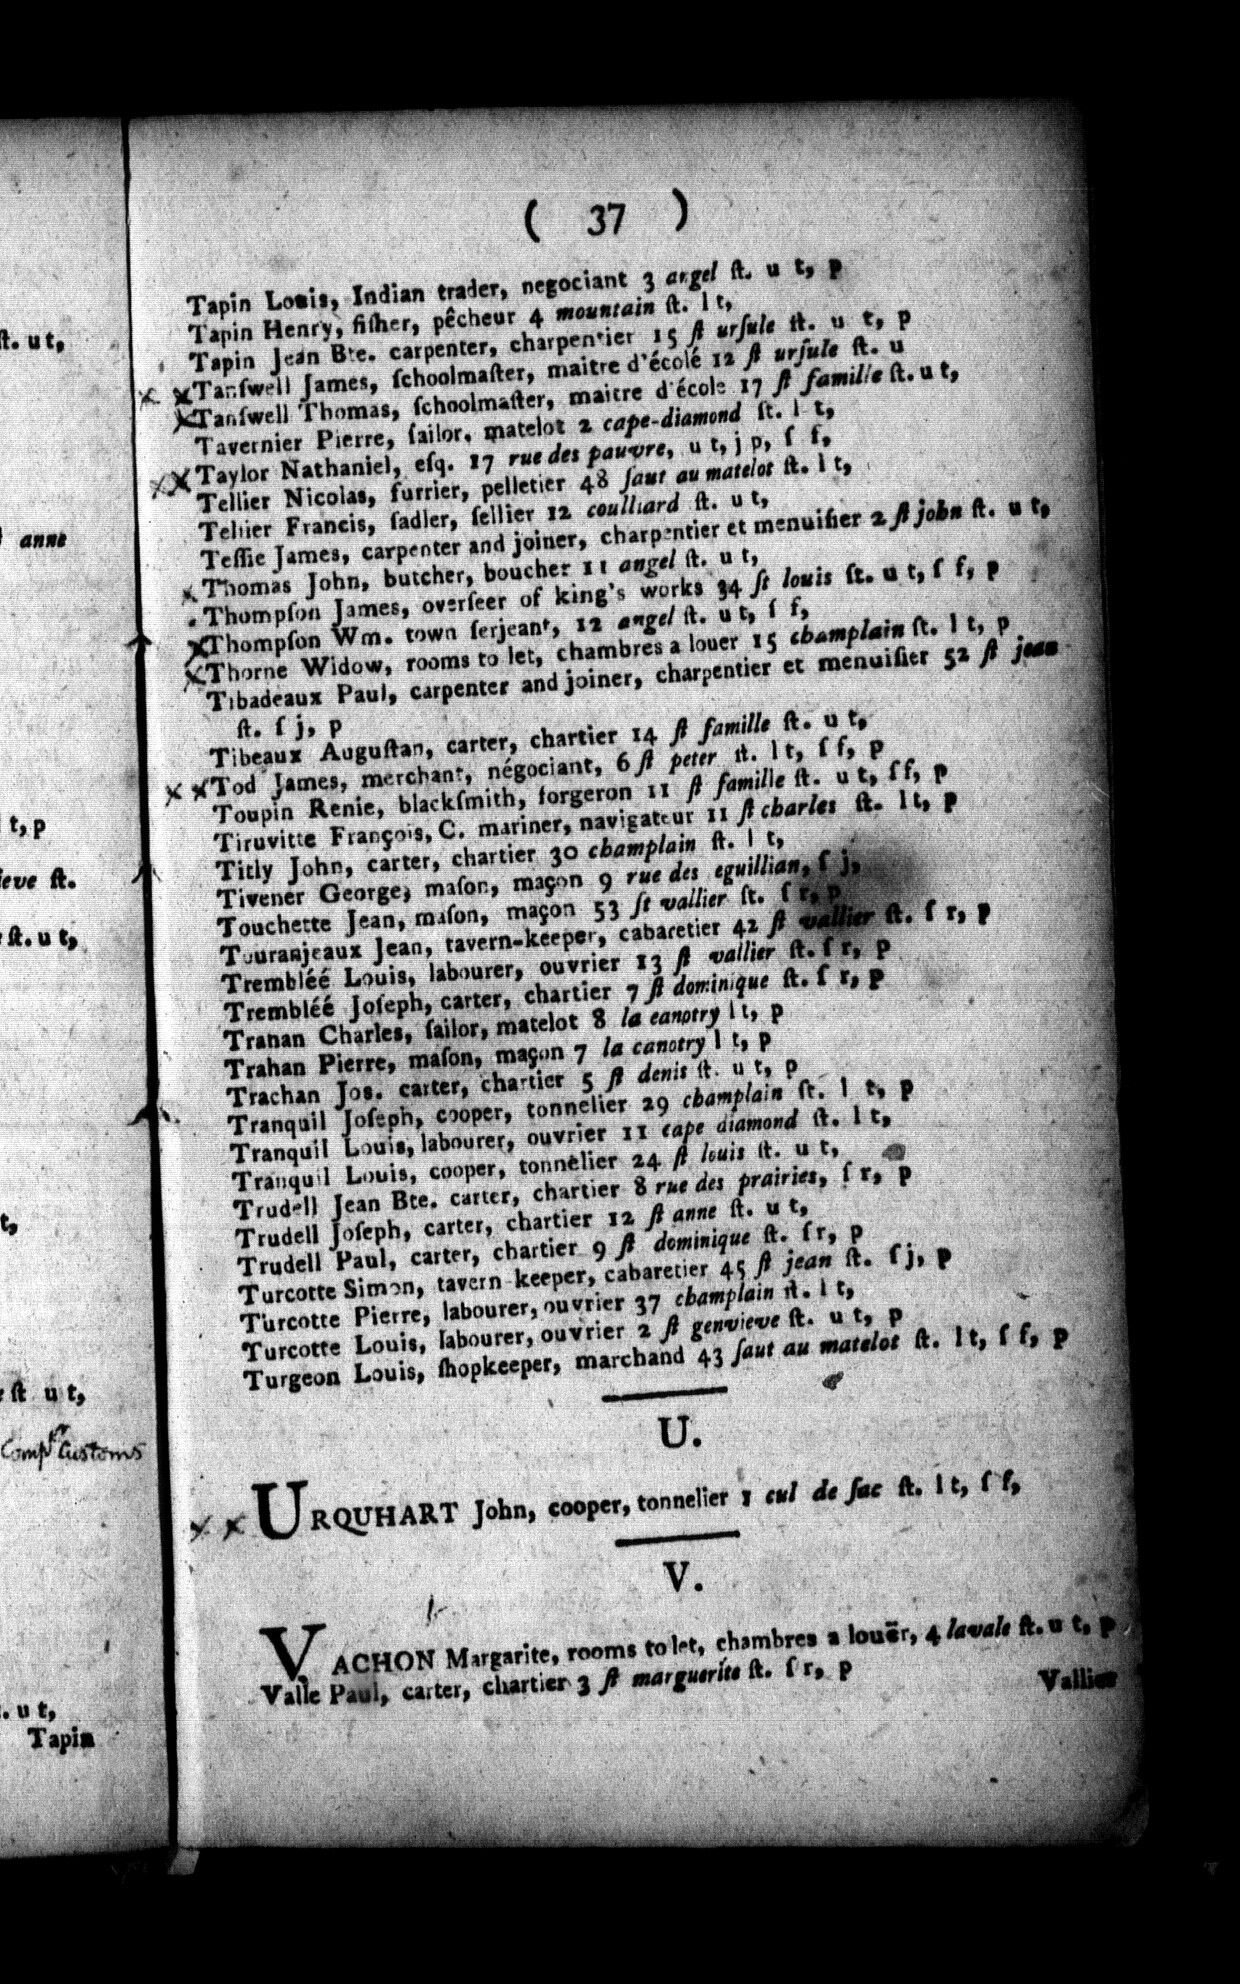 ( 37 )
Tapin Louis, Indian trader, negociant 3 angel ſt. u t, p
Tapin Henry, fiſher, pêcheur 4 mountain ſt. l t,
Tapin Jean Bte. carpenter, charpentier 15 ſt urſule ſt. u t, p
Tanſwell James, ſchoolmaſter, maitre d'écolé 12 ſt urſule ſt. u
Tanſwell Thomas, ſchoolmaſter, maitre d'école 17 ſt famille ſt. u t,
Tavernier Pierre, ſailor, matelot 2 cape-diamond ſt. l t,
Taylor Nathaniel, eſq. 17 rue des pauvre, u t, j p, ſ ſ,
Tellier Nicolas, furrier, pelletier 48 ſaut au matelot ſt. l t,
Tellier Francis, ſadler, ſellier 12 coulliard ſt. u t,
Teſſie James, carpenter and joiner, charpentier et menuiſier 2 ſt john ſt. u t,
Thomas John, butcher, boucher 11 angel ſt. u t,
Thompſon James, overſeer of king's works 34 ſt louis ſt. u t, ſ ſ, p
Thompſon Wm. town ſerjeant, 12 angel ſt. u t, ſ ſ,
Thorne Widow, rooms to let, chambres a louer 15 champlain ſt. l t, p
Tibadeaux Paul, carpenter and joiner, charpentier et menuiſier 52 ſt jean
ſt. ſ j, p
Tibeaux Auguſtan, carter, chartier 14 ſt famille ſt. u t,
Tod James, merchant, négociant, 6 ſt peter ſt. l t, ſ ſ, p
Toupin Renie, blackſmith, forgeron 11 ſt famille ſt. u t, ſ ſ, p
Tiruvitte François, C. mariner, navigateur 11 ſt charles ſt. l t, p
Titly John, carter, chartier 30 champlain ſt. l t,
Tivener George, maſon, maçon 9 rue des eguillian, ſ j,
Touchette Jean, maſon, maçon 53 ſt vallier ſt. ſ r, p
Touranjeaux Jean, tavern-keeper, cabaretier 42 ſt vallier ſt. ſ r, p
Trembléé Louis, labourer, ouvrier 13 ſt vallier ſt. ſ r, p
Trembléé Joſeph, carter, chartier 7 ſt dominique ſt. ſ r, p
Trahan Charles, ſailor, matelot 8 la canotry l t, p
Trahan Pierre, maſon, maçon 7 la canotry l t, p
Trachan Jos. carter, chartier 5 ſt denis ſt. u t, p
Tranquil Joſeph, cooper, tonnelier 29 champlain ſt. l t, p
Tranquil Louis, labourer, ouvrier 11 cape diamond ſt. l t,
Tranquil Louis, cooper, tonnelier 24 ſt louis ſt. u t,
Trudell Jean Bte. carter, chartier 8 rue des prairies, ſ r, p
Trudell Joſeph, carter, chartier 12 ſt anne ſt. u t,
Trudell Paul, carter, chartier 9 ſt dominique ſt. ſ r, p
Turcotte Simon, tavern-keeper, cabaretier 45 ſt jean ſt. ſ j, p
Turcotte Pierre, labourer, ouvrier 37 champlain ſt. l t,
Turcotte Louis, labourer, ouvrier 2 ſt genvieve ſt. u t, p
Turgeon Louis, ſhopkeeper, marchand 43 ſaut au matelot ſt. l t, ſ ſ, p
U.
URQUHART John, cooper, tonnelier 1 cul de ſac ſt. l t, ſ ſ,
V.
VACHON Margarite, rooms to let, chambres a louër, 4 lavale ſt. u t, p
Valle Paul, carter, chartier 3 ſt marguerite ſt. ſ r, p
Vallier
ſt. u t,
anne
t, p
ieve ſt.
ſt. u t,
t,
ſt u t,
Compr Customs
. u t,
Tapin